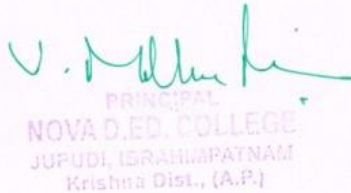 PRINCIPAL
NOVA D.ED. COLLEGE
JUPUDI, IBRAHIMPATNAM
Krishna Dist., (A.P.)